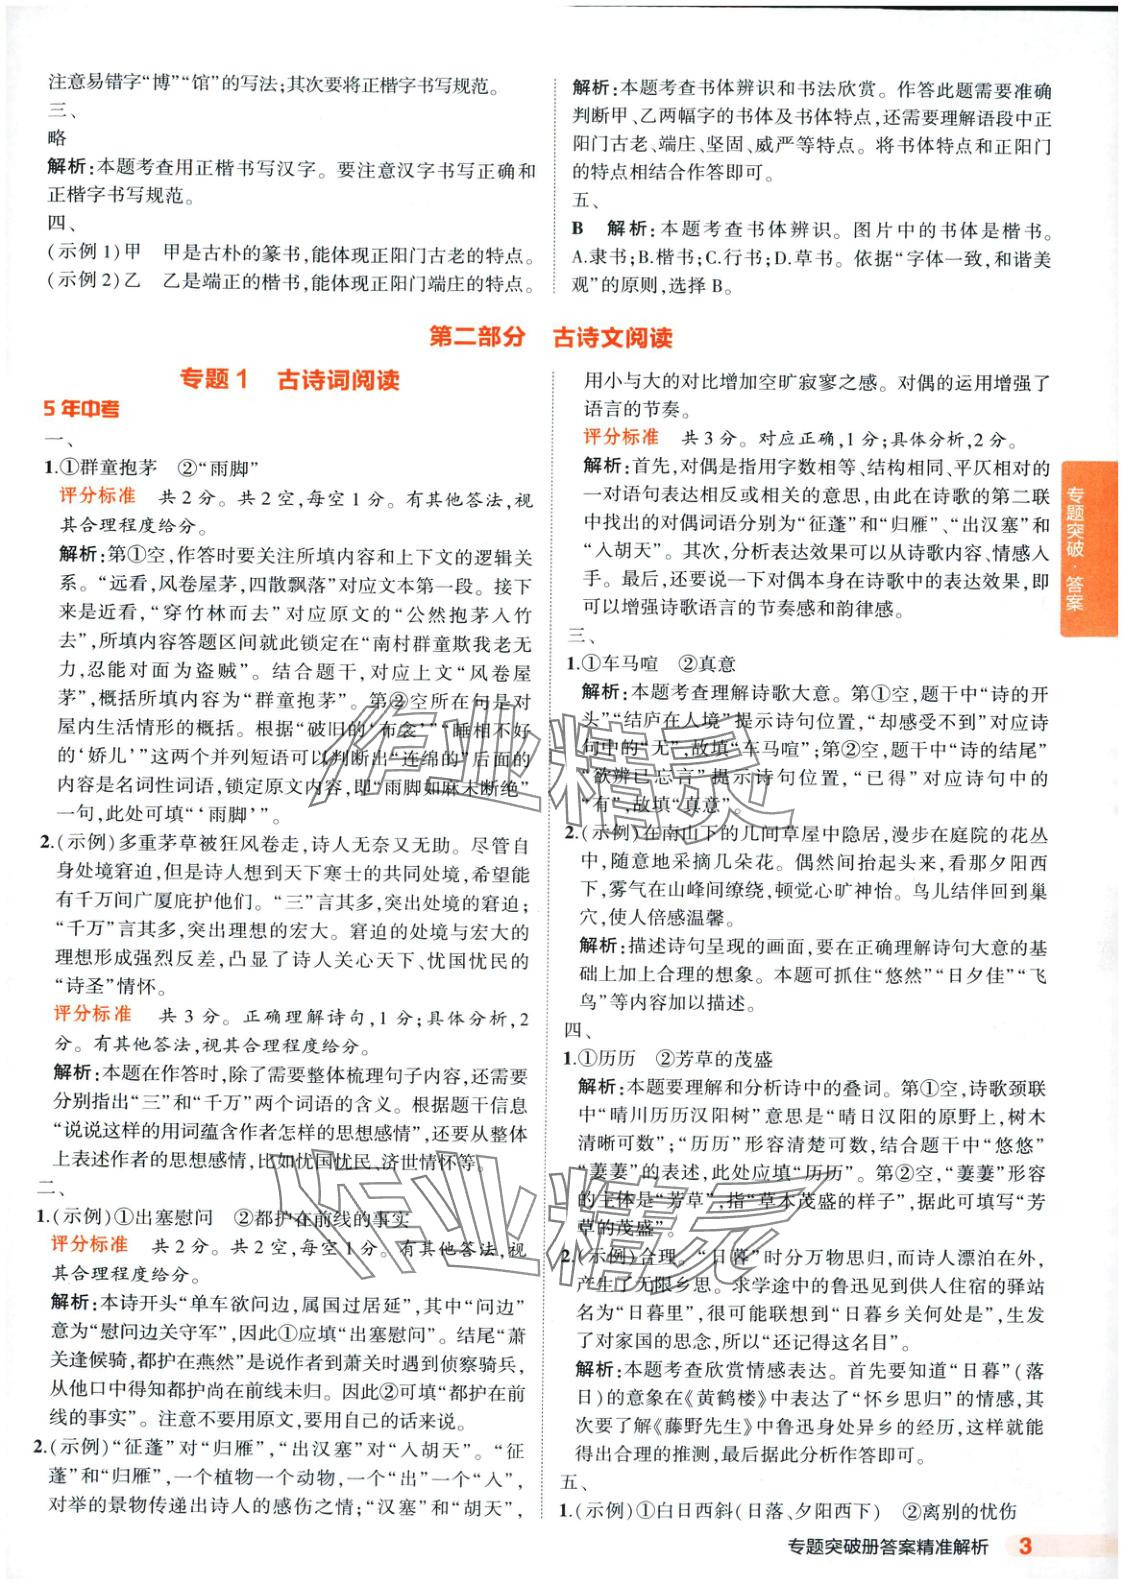 注意易错字“博”“馆”的写法；其次要将正楷字书写规范。
三、
略
解析：本题考查用正楷书写汉字。要注意汉字书写正确和
正楷字书写规范。
四、
（示例1）甲　甲是古朴的篆书，能体现正阳门古老的特点。
（示例2）乙　乙是端正的楷书，能体现正阳门端庄的特点。
解析：本题考查书体辨识和书法欣赏。作答此题需要准确
判断甲、乙两幅字的书体及书体特点，还需要理解语段中正
阳门古老、端庄、坚固、威严等特点。将书体特点和正阳门
的特点相结合作答即可。
五、
B　解析：本题考查书体辨识。图片中的书体是楷书。
A.隶书；B.楷书；C.行书；D.草书。依据“字体一致，和谐美
观”的原则，选择B。
第二部分　古诗文阅读
专题1　古诗词阅读
5年中考
一、
1.①群童抱茅　②“雨脚”
评分标准　共2分。共2空，每空1分。有其他答法，视
其合理程度给分。
解析：第①空，作答时要关注所填内容和上下文的逻辑关
系。“远看，风卷屋茅，四散飘落”对应文本第一段。接下
来是近看，“穿竹林而去”对应原文的“公然抱茅入竹
去”，所填内容答题区间就此锁定在“南村群童欺我老无
力，忍能对面为盗贼”。结合题干，对应上文“风卷屋
茅”，概括所填内容为“群童抱茅”。第②空所在句是对
屋内生活情形的概括。根据“破旧的‘布衾’”“睡相不好
的‘娇儿’”这两个并列短语可以判断出“连绵的”后面的
内容是名词性词语，锁定原文内容，即“雨脚如麻未断绝”
一句，此处可填“‘雨脚’”。
2.（示例）多重茅草被狂风卷走，诗人无奈又无助。尽管自
身处境窘迫，但是诗人想到天下寒士的共同处境，希望能
有千万间广厦庇护他们。“三”言其多，突出处境的窘迫；
“千万”言其多，突出理想的宏大。窘迫的处境与宏大的
理想形成强烈反差，凸显了诗人关心天下、忧国忧民的
“诗圣”情怀。
评分标准　共3分。正确理解诗句，1分；具体分析，2
分。有其他答法，视其合理程度给分。
解析：本题在作答时，除了需要整体梳理句子内容，还需要
分别指出“三”和“千万”两个词语的含义。根据题干信息
“说说这样的用词蕴含作者怎样的思想感情”，还要从整体
上表述作者的思想感情，比如忧国忧民、济世情怀等。
二、
1.（示例）①出塞慰问　②都护在前线的事实
评分标准　共2分。共2空，每空1分。有其他答法，视
其合理程度给分。
解析：本诗开头“单车欲问边，属国过居延”，其中“问边”
意为“慰问边关守军”，因此①应填“出塞慰问”。结尾“萧
关逢候骑，都护在燕然”是说作者到萧关时遇到侦察骑兵，
从他口中得知都护尚在前线未归。因此②可填“都护在前
线的事实”。注意不要用原文，要用自己的话来说。
2.（示例）“征蓬”对“归雁”，“出汉塞”对“入胡天”。“征
蓬”和“归雁”，一个植物一个动物，一个“出”一个“入”，
对举的景物传递出诗人的感伤之情；“汉塞”和“胡天”，
用小与大的对比增加空旷寂寥之感。对偶的运用增强了
语言的节奏。
评分标准　共3分。对应正确，1分；具体分析，2分。
解析：首先，对偶是指用字数相等、结构相同、平仄相对的
一对语句表达相反或相关的意思，由此在诗歌的第二联
中找出的对偶词语分别为“征蓬”和“归雁”、“出汉塞”和
“入胡天”。其次，分析表达效果可以从诗歌内容、情感入
手。最后，还要说一下对偶本身在诗歌中的表达效果，即
可以增强诗歌语言的节奏感和韵律感。
三、
1.①车马喧　②真意
解析：本题考查理解诗歌大意。第①空，题干中“诗的开
头”“结庐在人境”提示诗句位置，“却感受不到”对应诗
句中的“无”，故填“车马喧”；第②空，题干中“诗的结尾”
“欲辨已忘言”提示诗句位置，“已得”对应诗句中的
“有”，故填“真意”。
2.（示例）在南山下的几间草屋中隐居，漫步在庭院的花丛
中，随意地采摘几朵花。偶然间抬起头来，看那夕阳西
下，雾气在山峰间缭绕，顿觉心旷神怡。鸟儿结伴回到巢
穴，使人倍感温馨。
解析：描述诗句呈现的画面，要在正确理解诗句大意的基
础上加上合理的想象。本题可抓住“悠然”“日夕佳”“飞
鸟”等内容加以描述。
四、
1.①历历　②芳草的茂盛
解析：本题要理解和分析诗中的叠词。第①空，诗歌颈联
中“晴川历历汉阳树”意思是“晴日汉阳的原野上，树木
清晰可数”；“历历”形容清楚可数，结合题干中“悠悠”
“萋萋”的表述，此处应填“历历”。第②空，“萋萋”形容
的主体是“芳草”，指“草木茂盛的样子”，据此可填写“芳
草的茂盛”。
2.（示例）合理。“日暮”时分万物思归，而诗人漂泊在外，
产生了无限乡思。求学途中的鲁迅见到供人住宿的驿站
名为“日暮里”，很可能联想到“日暮乡关何处是”，生发
了对家国的思念，所以“还记得这名目”。
解析：本题考查欣赏情感表达。首先要知道“日暮”（落
日）的意象在《黄鹤楼》中表达了“怀乡思归”的情感，其
次要了解《藤野先生》中鲁迅身处异乡的经历，这样就能
得出合理的推测，最后据此分析作答即可。
五、
1.（示例）①白日西斜（日落、夕阳西下）　②离别的忧伤
专题突破·答案
专题突破册答案精准解析　3
作业精灵
作业精灵